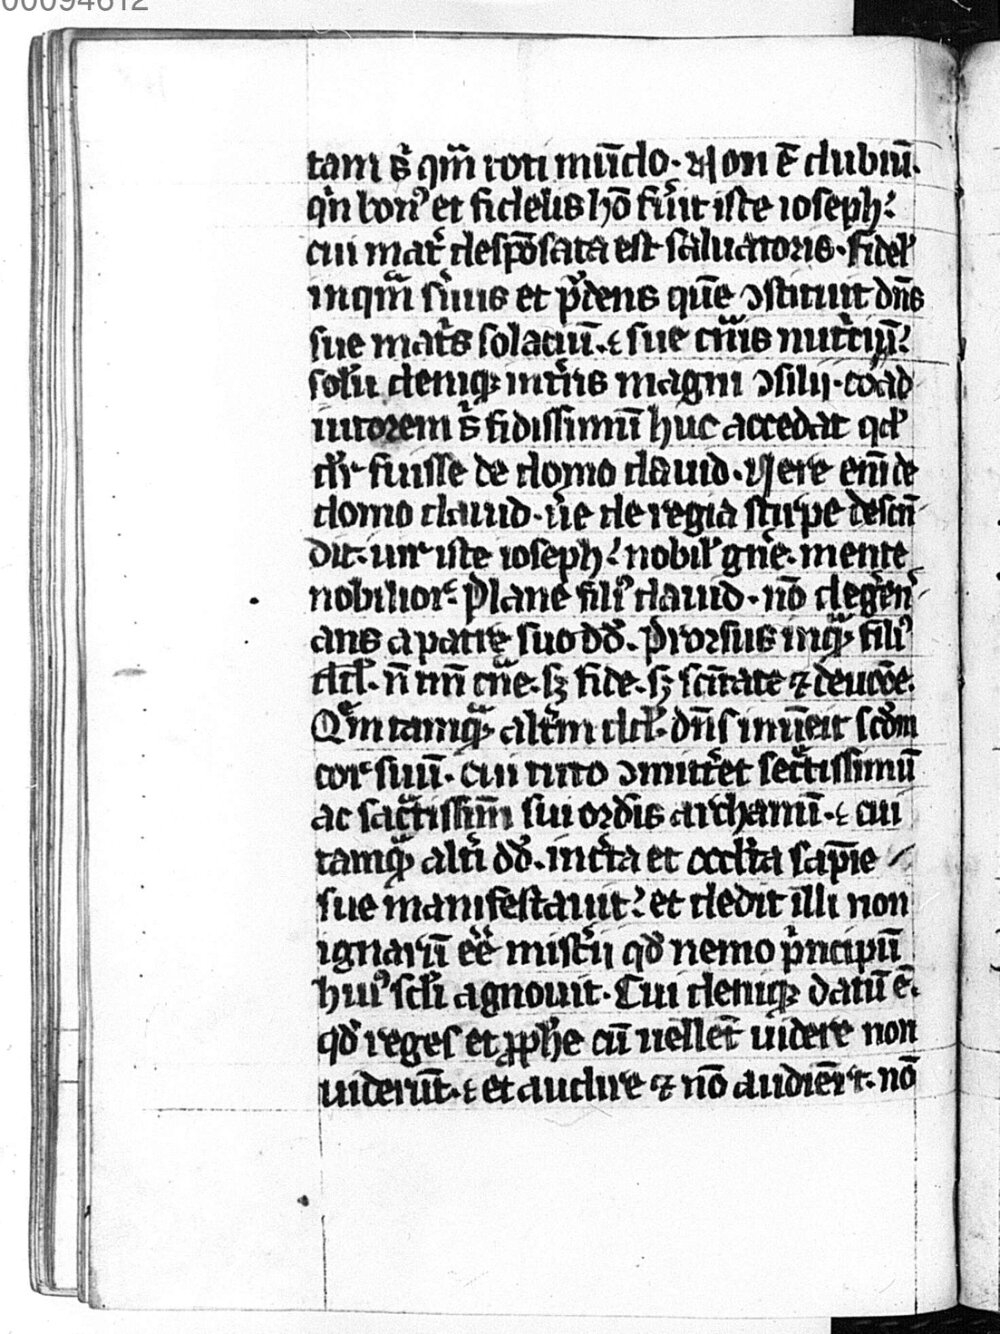 00094612
tam s̾ qm̄ toti mūdo. Non ē dubiū.
qͥn bonꝰ et fidelis hō fūit iste ioseph?
cui mat̾ despōsata est saluatoris. fidel̾
inqm̄ s̾uus et p̾dens quē ꝯstituit dn̄s
sue mat̾s solaciū. ⁊ sue cīnis nut̾ciū?
solū deniqꝫ int̾ris magni ꝯsilii. coad
iutorem s̾ fidissimū huc accedat qd̾
dr̄ fuisse de domo dauid. Vere eni̅ de
domo dauid. ue̾ de regia stirpe descn̄
dit. uir iste ioseph? nobil̾ gn̄e. mente
nobilior. Plane filiꝰ dauid. nō degen̾
ans a patre suo dd̾. Prorsus inqͣꝫ filiꝰ
dd̾. n̄ tm̄ cn̄e. sꝫ fide. sꝫ scīt̾ate ⁊ deuōe.
Qm̄ tamqͣꝫ alt̾m dd̾. dn̄s inuēit scd̾m
cor suū. cui tuto ꝯmitt̾et sec̾tissimū
ac sac̾tissim̄ sui ordīs archanū. ⁊ cui
tamqͣꝫ alt̾i dd̾. inc̾ta et occl̾ta sapīe
sue manifestauit? et dedit illi non
ignarū eē̾ mist̾ii qd̾ nemo pͥncipū
huiꝰ scl̾i agnouit. Cui deniqꝫ datū ē.
qd̾ reges et ꝓph̄e cū uellēt uidere non
uiderūt. ⁊ et audire ⁊ nō audiēr̄t. nō